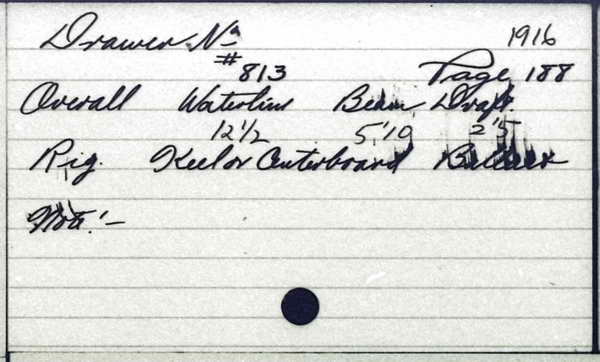 Drawer No 1916
#813 Page 188
Overall Waterline Beam Draft.
12 1/2 5'10 2'5
Rig. Keel or Centerboard Ballast
Note:-